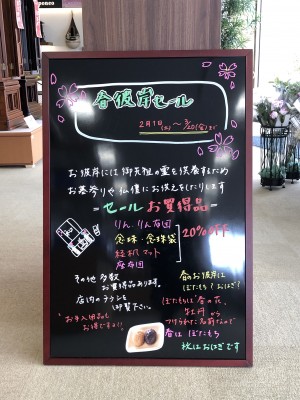 春彼岸セール
2月1日(火)～3/20(金)まで
お彼岸には御先祖の霊を供養するため
お墓参りや仏壇にお供えをしたりします
-セールお買得品-
りん、りん布団
念珠・念珠袋
経机マット
座布団
20%OFF
その他多数
お買得品あります。
店内のチラシを
御覧下さい。
お手入用品も
お得ですよ!!
春のお彼岸は
ぼたもち?おはぎ?
ぼたもちは春の花、
牡丹から
つけられた名前なので
春はぼたもち
秋はおはぎです